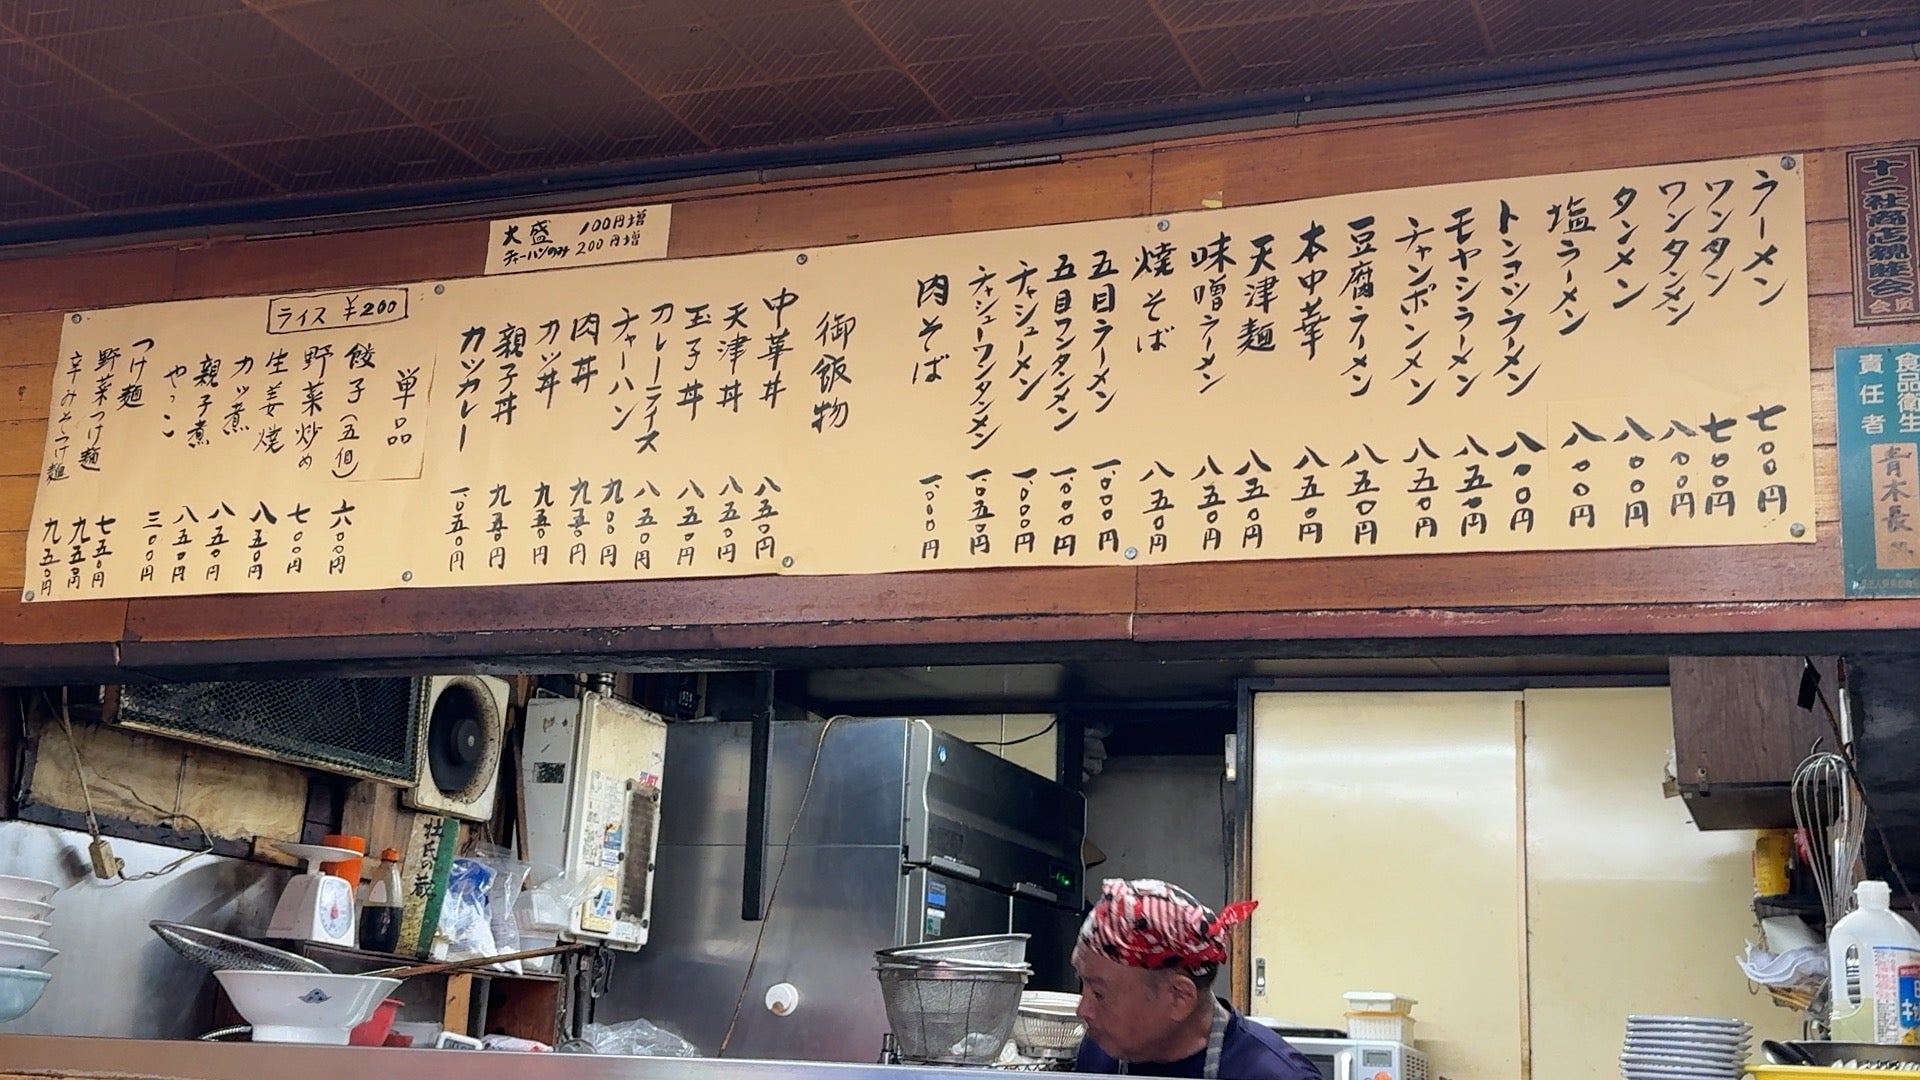 大盛 100円増
チャーハンのみ 200円増
ラーメン 七〇〇円
ワンタン 七〇〇円
ワンタンメン 八〇〇円
タンメン 八〇〇円
塩ラーメン 八〇〇円
トンコツラーメン 八〇〇円
モヤシラーメン 八五〇円
チャンポンメン 八五〇円
豆腐ラーメン 八五〇円
本中華 八五〇円
天津麺 八五〇円
味噌ラーメン 八五〇円
焼そば 八五〇円
五目ラーメン 一、〇〇〇円
五目ワンタンメン 一、〇〇〇円
チャシューメン 一、〇〇〇円
チャシューワンタンメン 一、〇五〇円
肉そば 一、〇〇〇円
御飯物
中華丼 八五〇円
天津丼 八五〇円
玉子丼 八五〇円
カレーライス 八五〇円
チャーハン 九〇〇円
肉丼 九五〇円
カツ丼 九五〇円
親子丼 九五〇円
カツカレー 一、〇五〇円
ライス ¥200
単品
餃子(五個) 六〇〇円
野菜炒め 七〇〇円
生姜焼 八五〇円
カツ煮 八五〇円
親子煮 八五〇円
やっこ 三〇〇円
つけ麺 七五〇円
野菜つけ麺 九五〇円
辛みそつけ麺 九五〇円
十二社商店親睦会
会員
食品衛生
責任者
青木長
杜氏の蔵